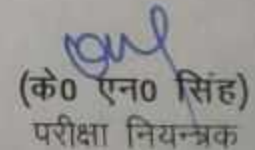 (के0 एन0 सिंह)
परीक्षा नियन्त्रक